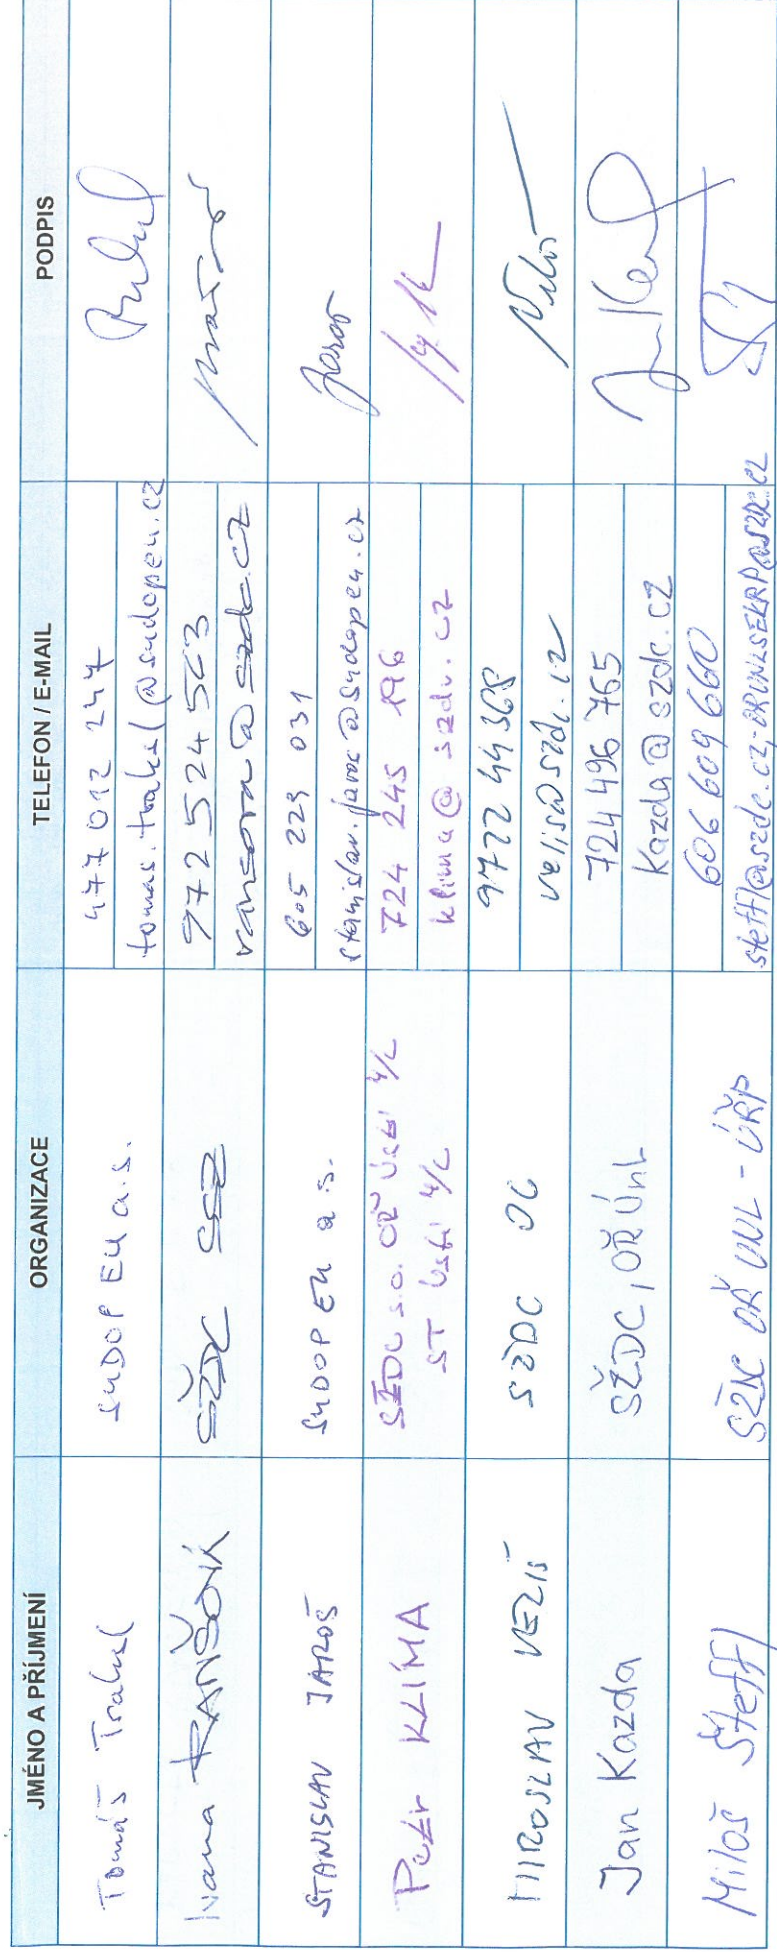 JMÉNO A PŘÍJMENÍ ORGANIZACE TELEFON / E-MAIL PODPIS
Tomáš Trakal SUDOP EU a.s. 477 012 247
tomas.trakal@sudopeu.cz
Ivana RANŠOVÁ SŽDC SSZ 972 524 563
ransova@szdc.cz
STANISLAV JAROŠ SUDOP EU a.s. 605 229 031
stanislav.jaros@sudopeu.cz
Petr KLÍMA SŽDC s.o. OŘ Ústí n/L 724 245 196
ST Ústí n/L klima@szdc.cz
MIROSLAV VELIŠ SŽDC OŘ 9722 44368
velis@szdc.cz
Jan Kazda SŽDC, OŘ ÚnL 724 496 765
Kazda@szdc.cz
Miloš Šteffl SŽDC OŘ UNL - ÚŘP 606 609 660
steffl@szdc.cz,